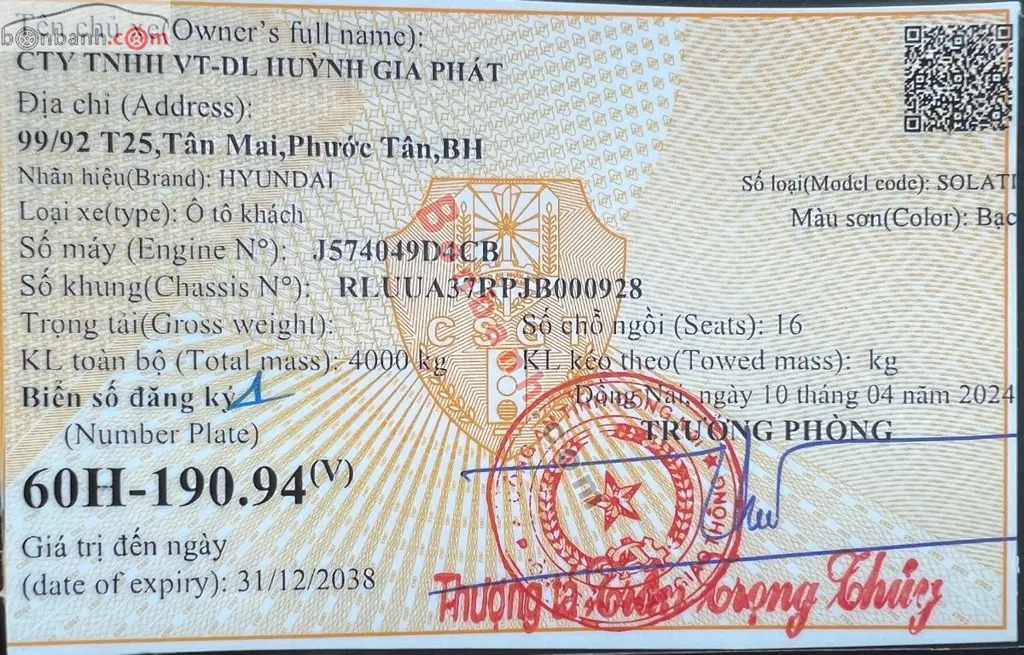 bonbanh.com
Tên chủ xe (Owner's full name):
CTY TNHH VT-DL HUỲNH GIA PHÁT
Địa chỉ (Address):
99/92 T25,Tân Mai,Phước Tân,BH
Nhãn hiệu(Brand): HYUNDAI
Số loại(Model code): SOLATI
Loại xe(type): Ô tô khách
Màu sơn(Color): Bạc
Số máy (Engine N°): J574049D4CB
Số khung(Chassis N°): RLUUA37RPJB000928
Trọng tải(Gross weight):
Số chỗ ngồi (Seats): 16
KL toàn bộ (Total mass): 4000 kg
KL kéo theo(Towed mass): kg
Biển số đăng ký
Đồng Nai, ngày 10 tháng 04 năm 2024
(Number Plate)
TRƯỞNG PHÒNG
60H-190.94(V)
Giá trị đến ngày
(date of expiry): 31/12/2038
CSGT
Thượng tá Trọng Thủy